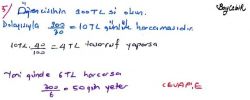 5) Öğrencisinin 300 TL si olsun.
Dolayısıyla 300/30 = 10 TL günlük harcamasıdır.
10 TL . 40/100 = 4 TL tasarruf yaparsa
Yeni günde 6 TL harcarsa
300/6 = 50 gün yeter
CEVAP: E